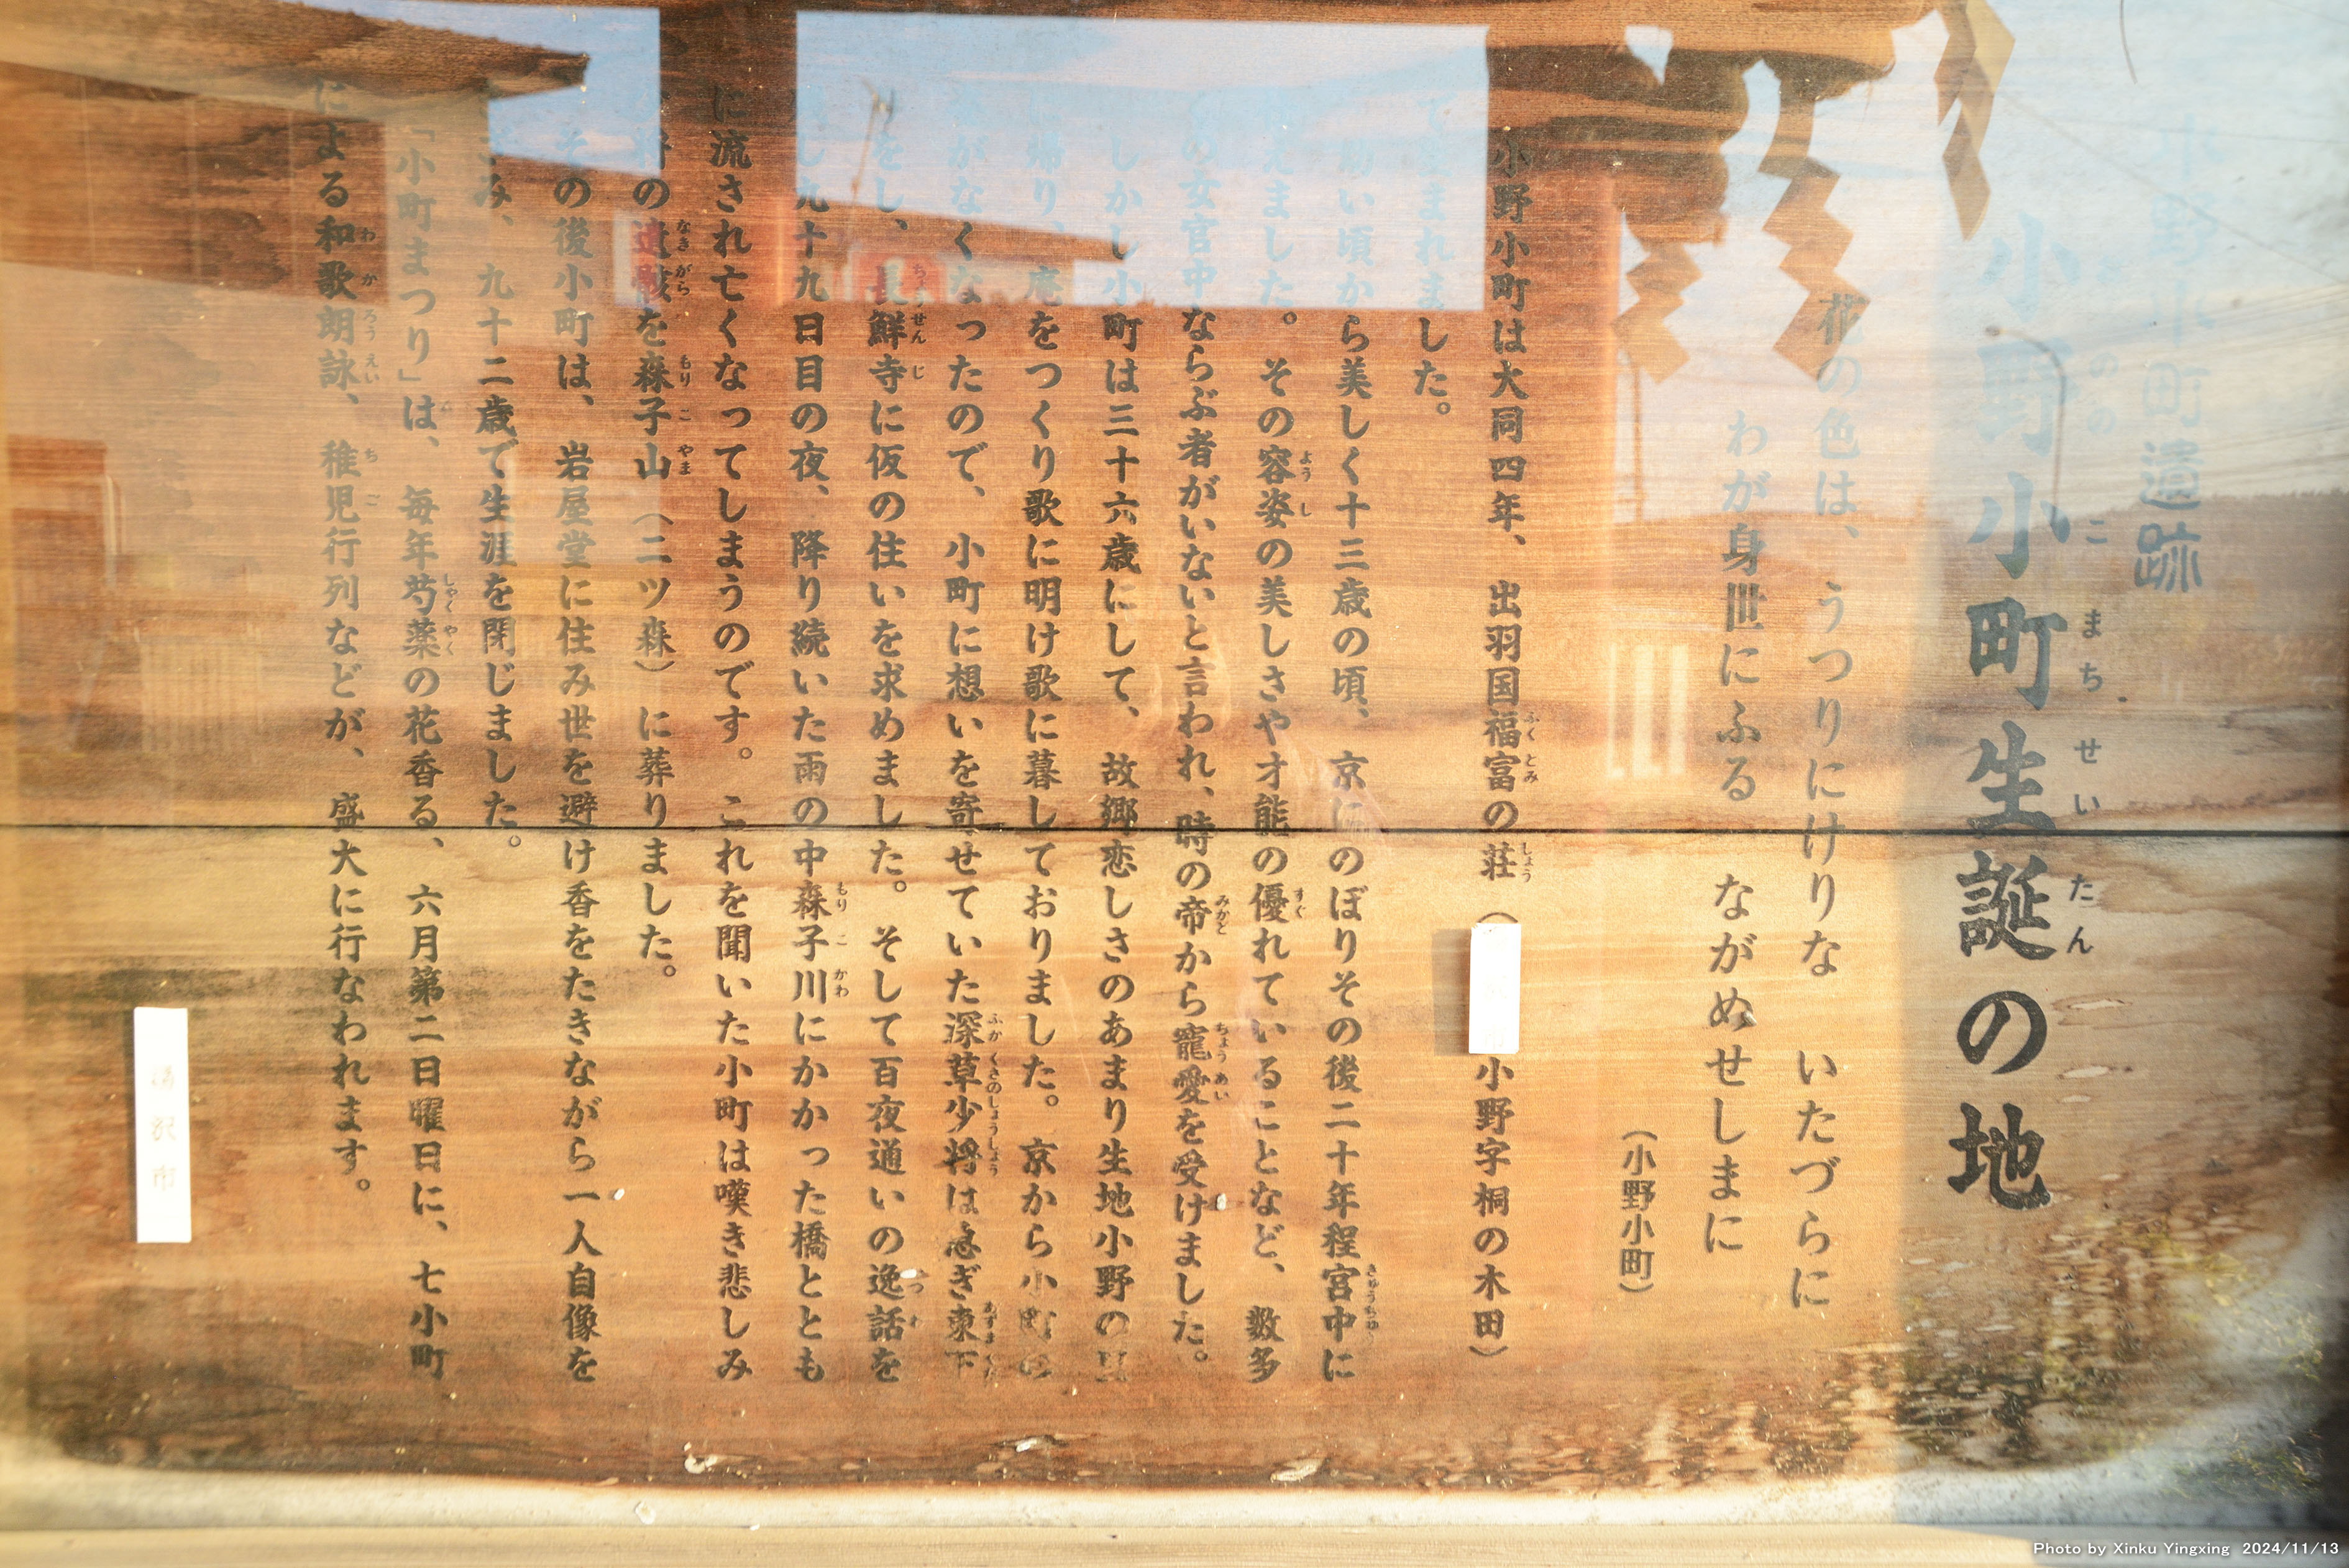 小野小町遺跡
小野小町生誕の地
花の色は、うつりにけりな いたづらに
わが身世にふる ながめせしまに
(小野小町)
小野小町は大同四年、出羽国福富の荘(小野字桐の木田)
て生まれました。
幼い頃から美しく十三歳の頃、京にのぼりその後二十年程宮中に
えました。その容姿の美しさや才能の優れていることなど、数多
の女官中ならぶ者がいないと言われ、時の帝から寵愛を受けました。
しかし小町は三十六歳にして、故郷恋しさのあまり生地小野の
帰り、庵をつくり歌に明け歌に暮しておりました。京から小町の
がなくなったので、小町に想いを寄せていた深草少将は急ぎ東下
をし、長鮮寺に仮の住いを求めました。そして百夜通いの逸話を
し九十九日目の夜、降り続いた雨の中森子川にかかった橋ととも
に流され亡くなってしまうのです。これを聞いた小町は嘆き悲しみ
将の遺骸を森子山(二ツ森)に葬りました。
その後小町は、岩屋堂に住み世を避け香をたきながら一人自像を
み、九十二歳で生涯を閉じました。
「小町まつり」は、毎年芍薬の花香る、六月第二日曜日に、七小町
による和歌朗詠、稚児行列などが、盛大に行なわれます。
湯沢市
Photo by Xinku Yingxing 2024/11/13